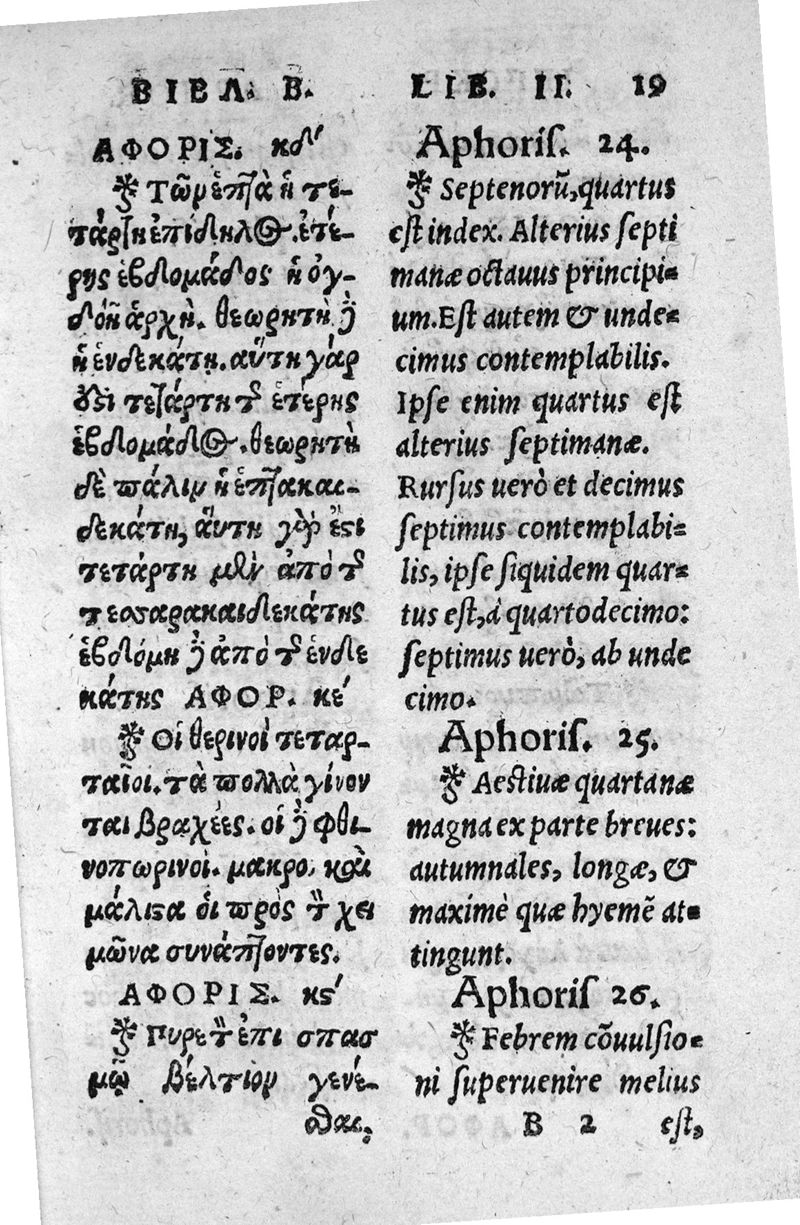 ΒΙΒΛ. Β.
ΑΦΟΡΙΣ. κδʹ
Τῶν ἑπτὰ ἡ τε-
τάρτη ἐπίδηλος. ἑτέ-
ρης ἑβδομάδος ἡ ὀγ-
δόη ἀρχή. θεωρητὴ δὲ
ἡ ἑνδεκάτη. αὕτη γάρ
ἐστι τετάρτη τῆς ἑτέρης
ἑβδομάδος. θεωρητὴ
δὲ πάλιν ἡ ἑπτακαι-
δεκάτη, αὕτη γάρ ἐστι
τετάρτη μὲν ἀπὸ τῆς
τεσσαρακαιδεκάτης
ἑβδόμη δὲ ἀπὸ τῆς ἑνδε
κάτης ΑΦΟΡ. κεʹ
Οἱ θερινοὶ τεταρ-
ταῖοι. τὰ πολλὰ γίνον
ται βραχέες. οἱ δὲ φθι-
νοπωρινοὶ. μακρο, καὶ
μάλιστα οἱ πρὸς τὸν χει
μῶνα συνάπτοντες.
ΑΦΟΡΙΣ. κϛʹ
Πυρετὸν ἐπὶ σπασ
μῷ βέλτιον γενέ-
σθαι,
LIB. II. 19
Aphoriſ. 24.
Septenorũ, quartus
eſt index. Alterius ſepti
manæ octauus principi-
um. Eſt autem & unde-
cimus contemplabilis.
Ipſe enim quartus eſt
alterius ſeptimanæ.
Rurſus uerò et decimus
ſeptimus contemplabi-
lis, ipſe ſiquidem quar-
tus eſt, à quartodecimo:
ſeptimus uerò, ab unde
cimo.
Aphoriſ. 25.
Aeſtiuæ quartanæ
magna ex parte breues:
autumnales, longæ, &
maximè quæ hyemẽ at-
tingunt.
Aphoriſ 26.
Febrem cõuulſio-
ni ſuperuenire melius
B 2 eſt,